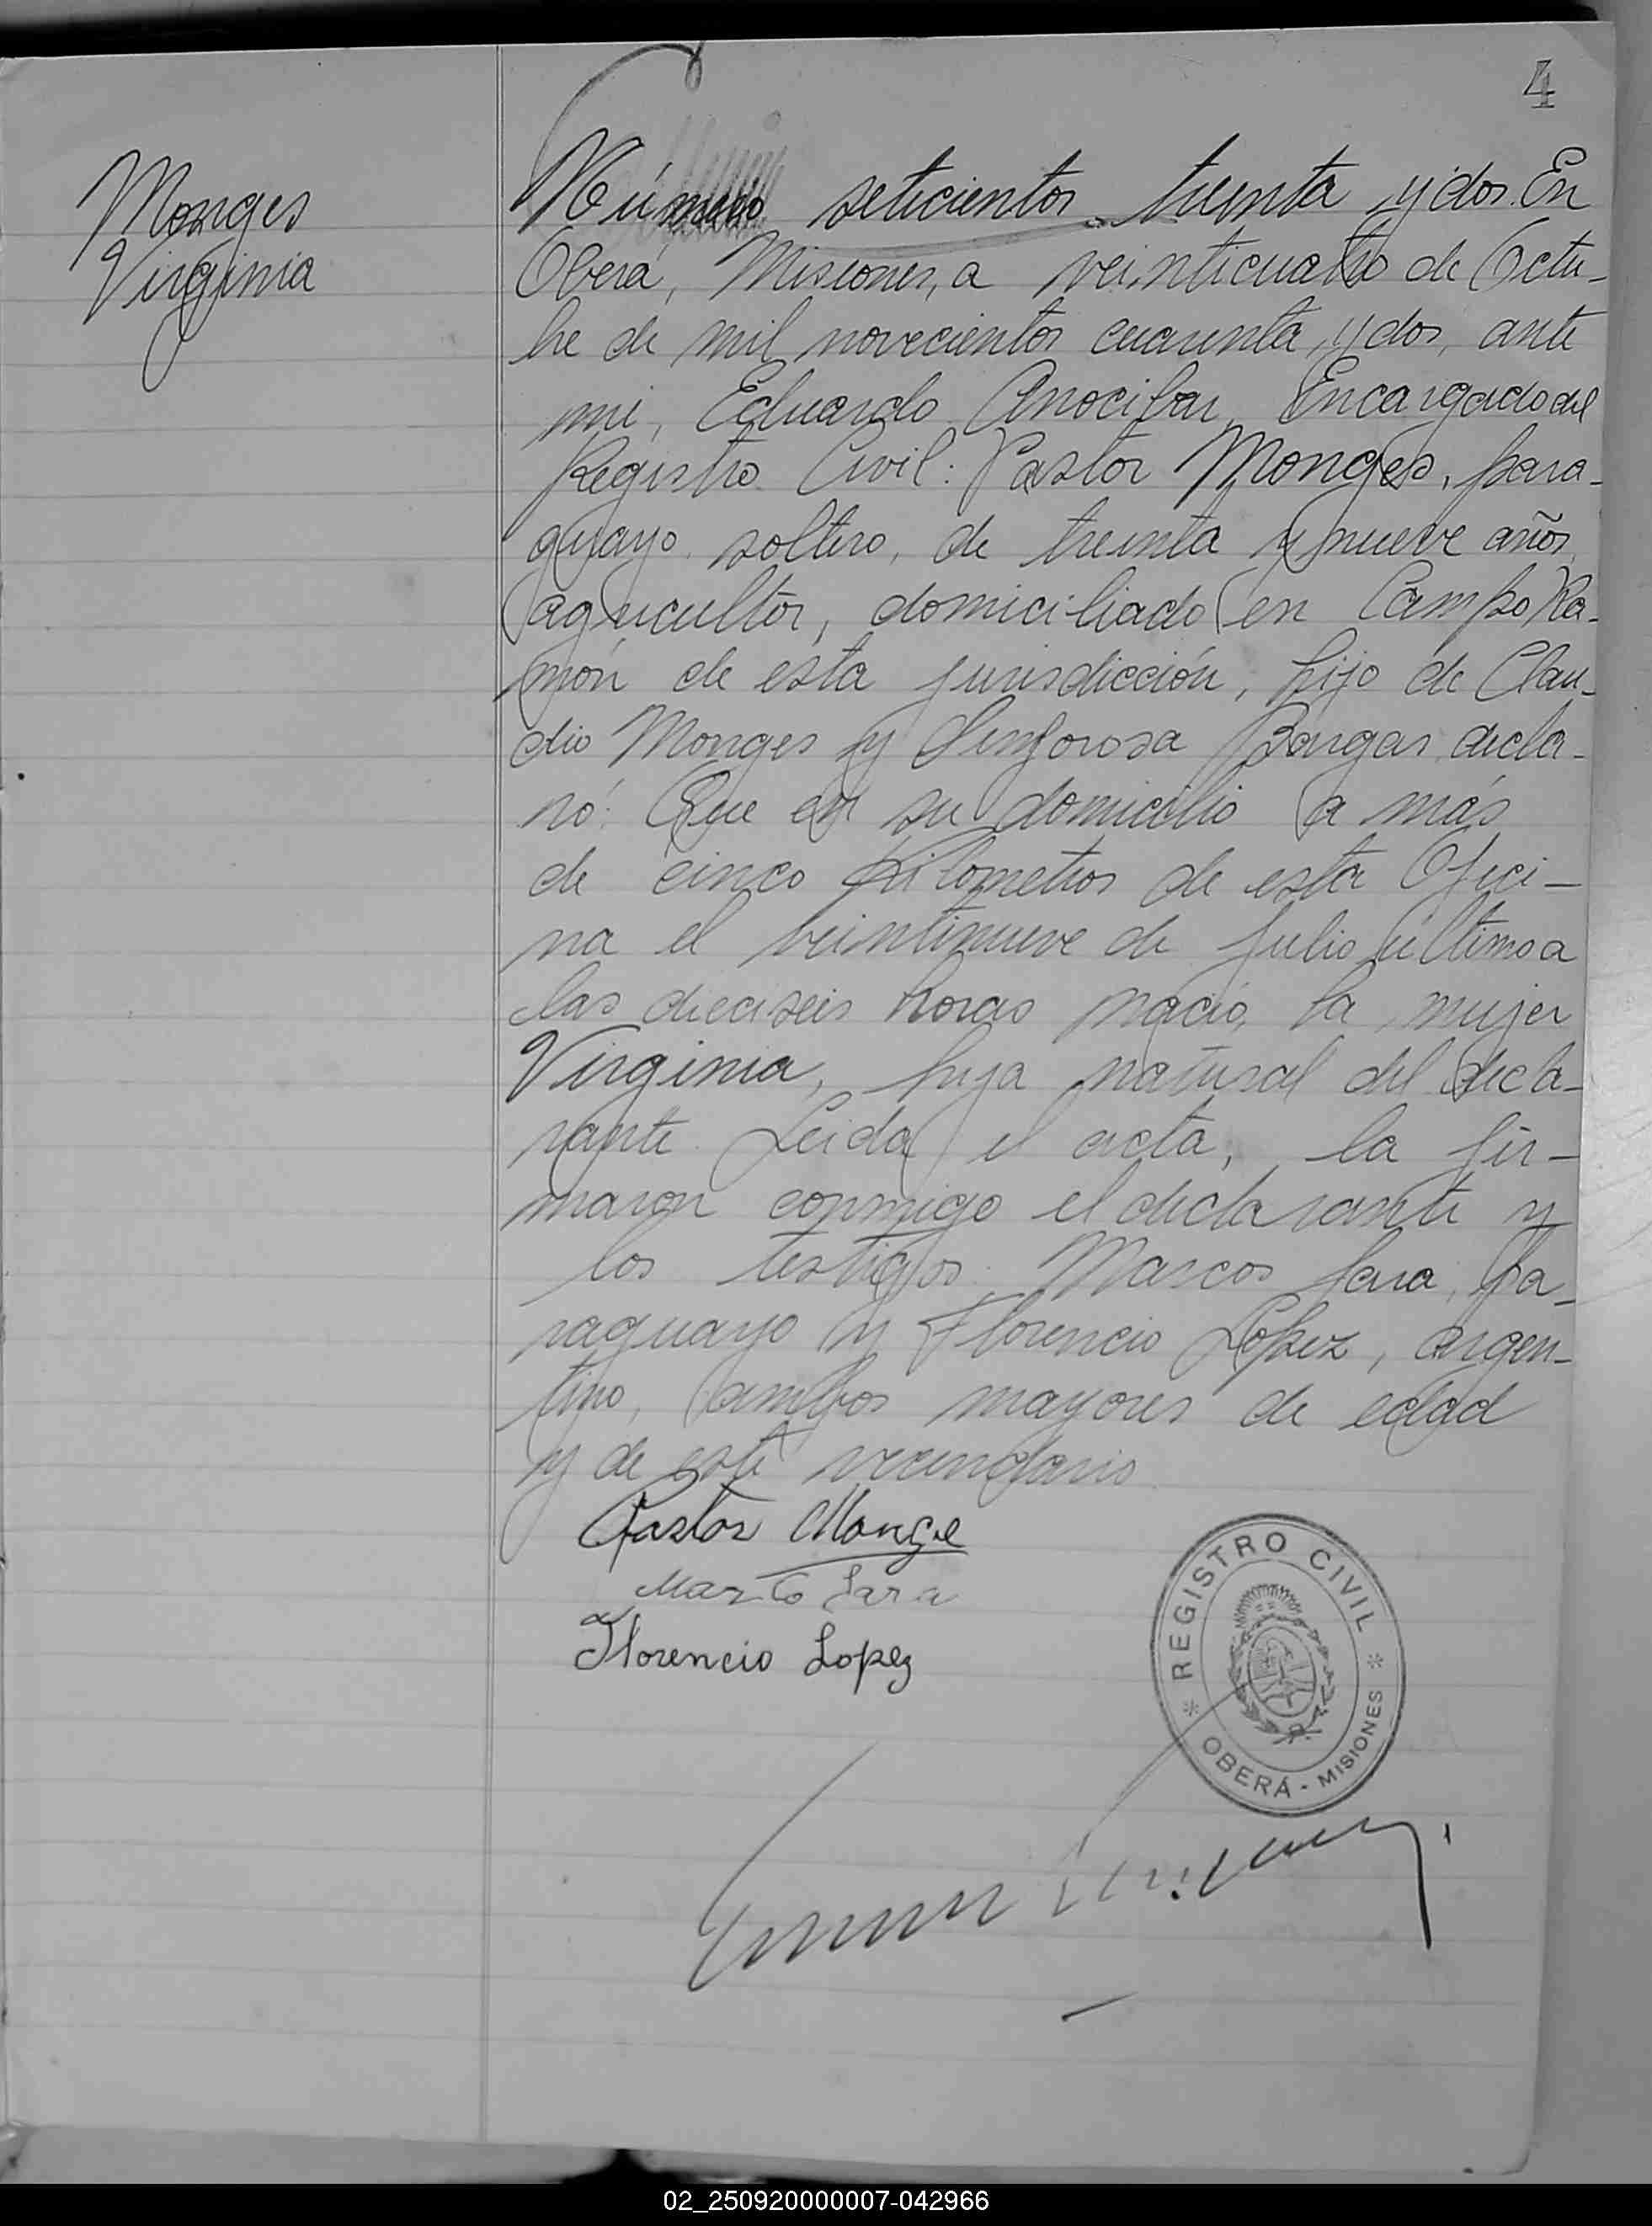 4
Monges
Virginia
Número seticientos treinta y dos. En
Oberá, Misiones, a veinticuatro de Octu-
bre de mil novecientos cuarenta y dos, ante
mi, Eduardo Arocibar, Encargado del
Registro Civil: Pastor Monges, para-
guayo, soltero, de treinta y nueve años,
agricultor, domiciliado en Campo Ra-
món de esta jurisdicción, hijo de Clau-
dio Monges y Sinforosa Bargas, decla-
ró: Que en su domicilio a más
de cinco kilometros de esta Ofici-
na el veintinueve de julio último a
las dieciseis horas nació, la mujer
Virginia, hija natural del decla-
rante. Leida el acta, la fir-
maron conmigo el declarante y
los testigos: Marcos Jara, pa-
raguayo y Florencio Lopez, argen-
tino, ambos mayores de edad
y de este vecindario
Pastor Monge
Jara
Florencio Lopez
REGISTRO CIVIL
OBERÁ - MISIONES
02_250920000007-042966